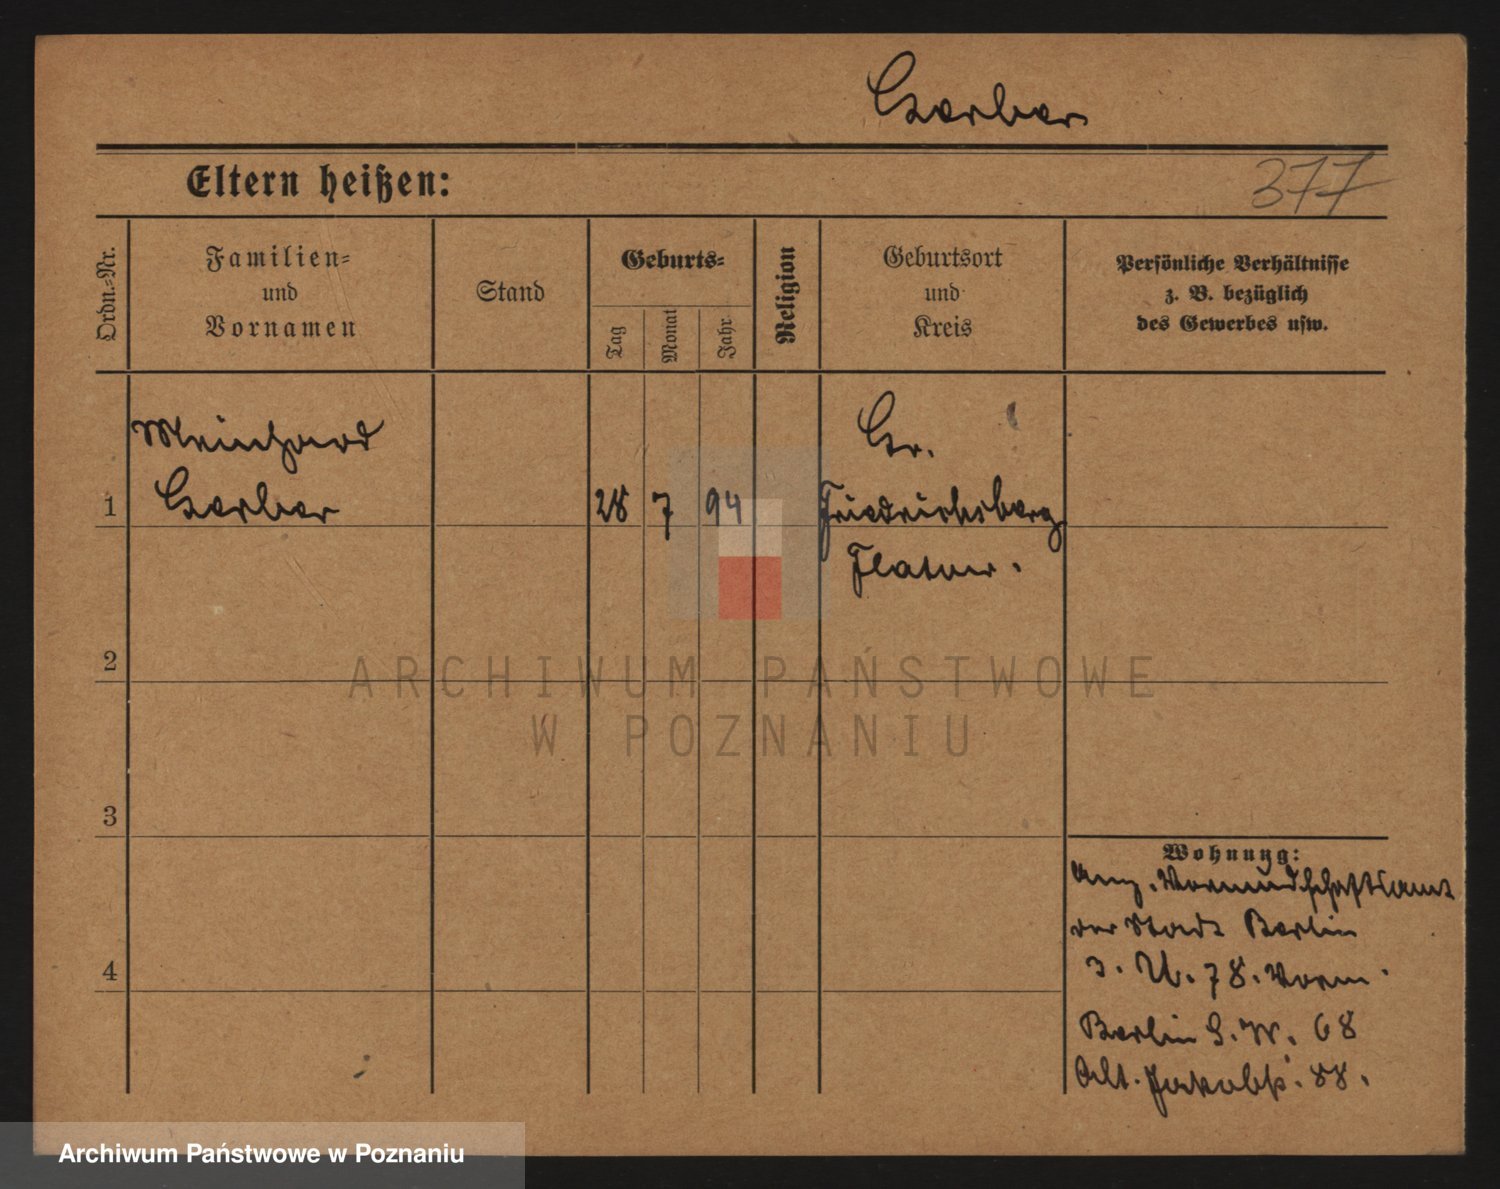 Gerber
Eltern heißen:
377
Ordn.-Nr.
Familien-
und
Vornamen
Stand
Geburts-
Tag
Monat
Jahr
Religion
Geburtsort
und
Kreis
Persönliche Verhältnisse
z. B. bezüglich
des Gewerbes usw.
Meinhard
Gr.
1 Gerber 28 7 94 Friedrichsberg
Flatow.
2
ARCHIWUM PAŃSTWOWE
W POZNANIU
3
Wohnung:
Ang. Vormundschaftsamt
der Stadt Berlin
3. U. 78. Vorm.
4
Berlin S.W. 68
Alt. Jakobstr. 88.
Archiwum Państwowe w Poznaniu